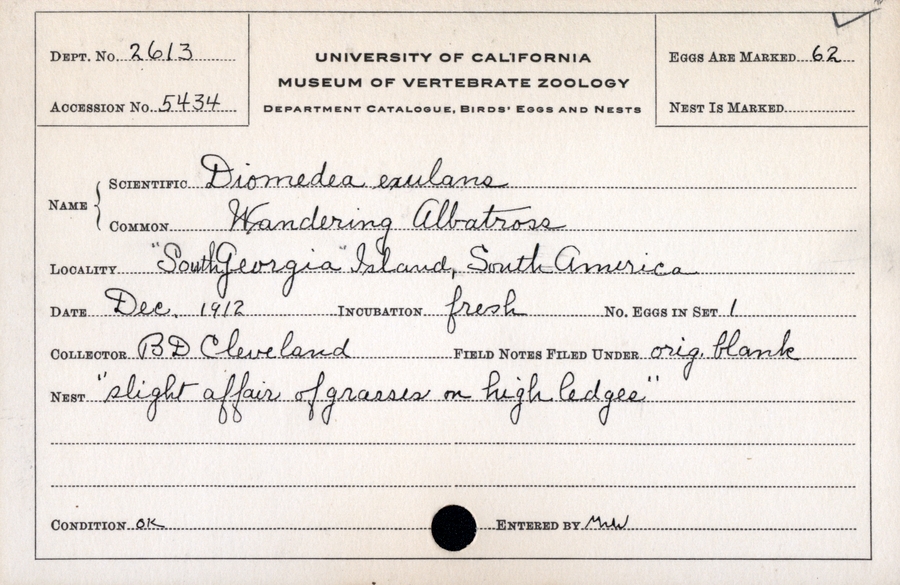 DEPT. NO. 2613
ACCESSION NO. 5434
UNIVERSITY OF CALIFORNIA
MUSEUM OF VERTEBRATE ZOOLOGY
DEPARTMENT CATALOGUE, BIRDS' EGGS AND NESTS
EGGS ARE MARKED 62
NEST IS MARKED
NAME
SCIENTIFIC Diomedea exulans
COMMON Wandering Albatross
LOCALITY "South Georgia" Island, South America
DATE Dec. 1912 INCUBATION fresh NO. EGGS IN SET 1
COLLECTOR BD Cleveland FIELD NOTES FILED UNDER orig. blank
NEST "slight affair of grasses on high ledges"
CONDITION OK ENTERED BY